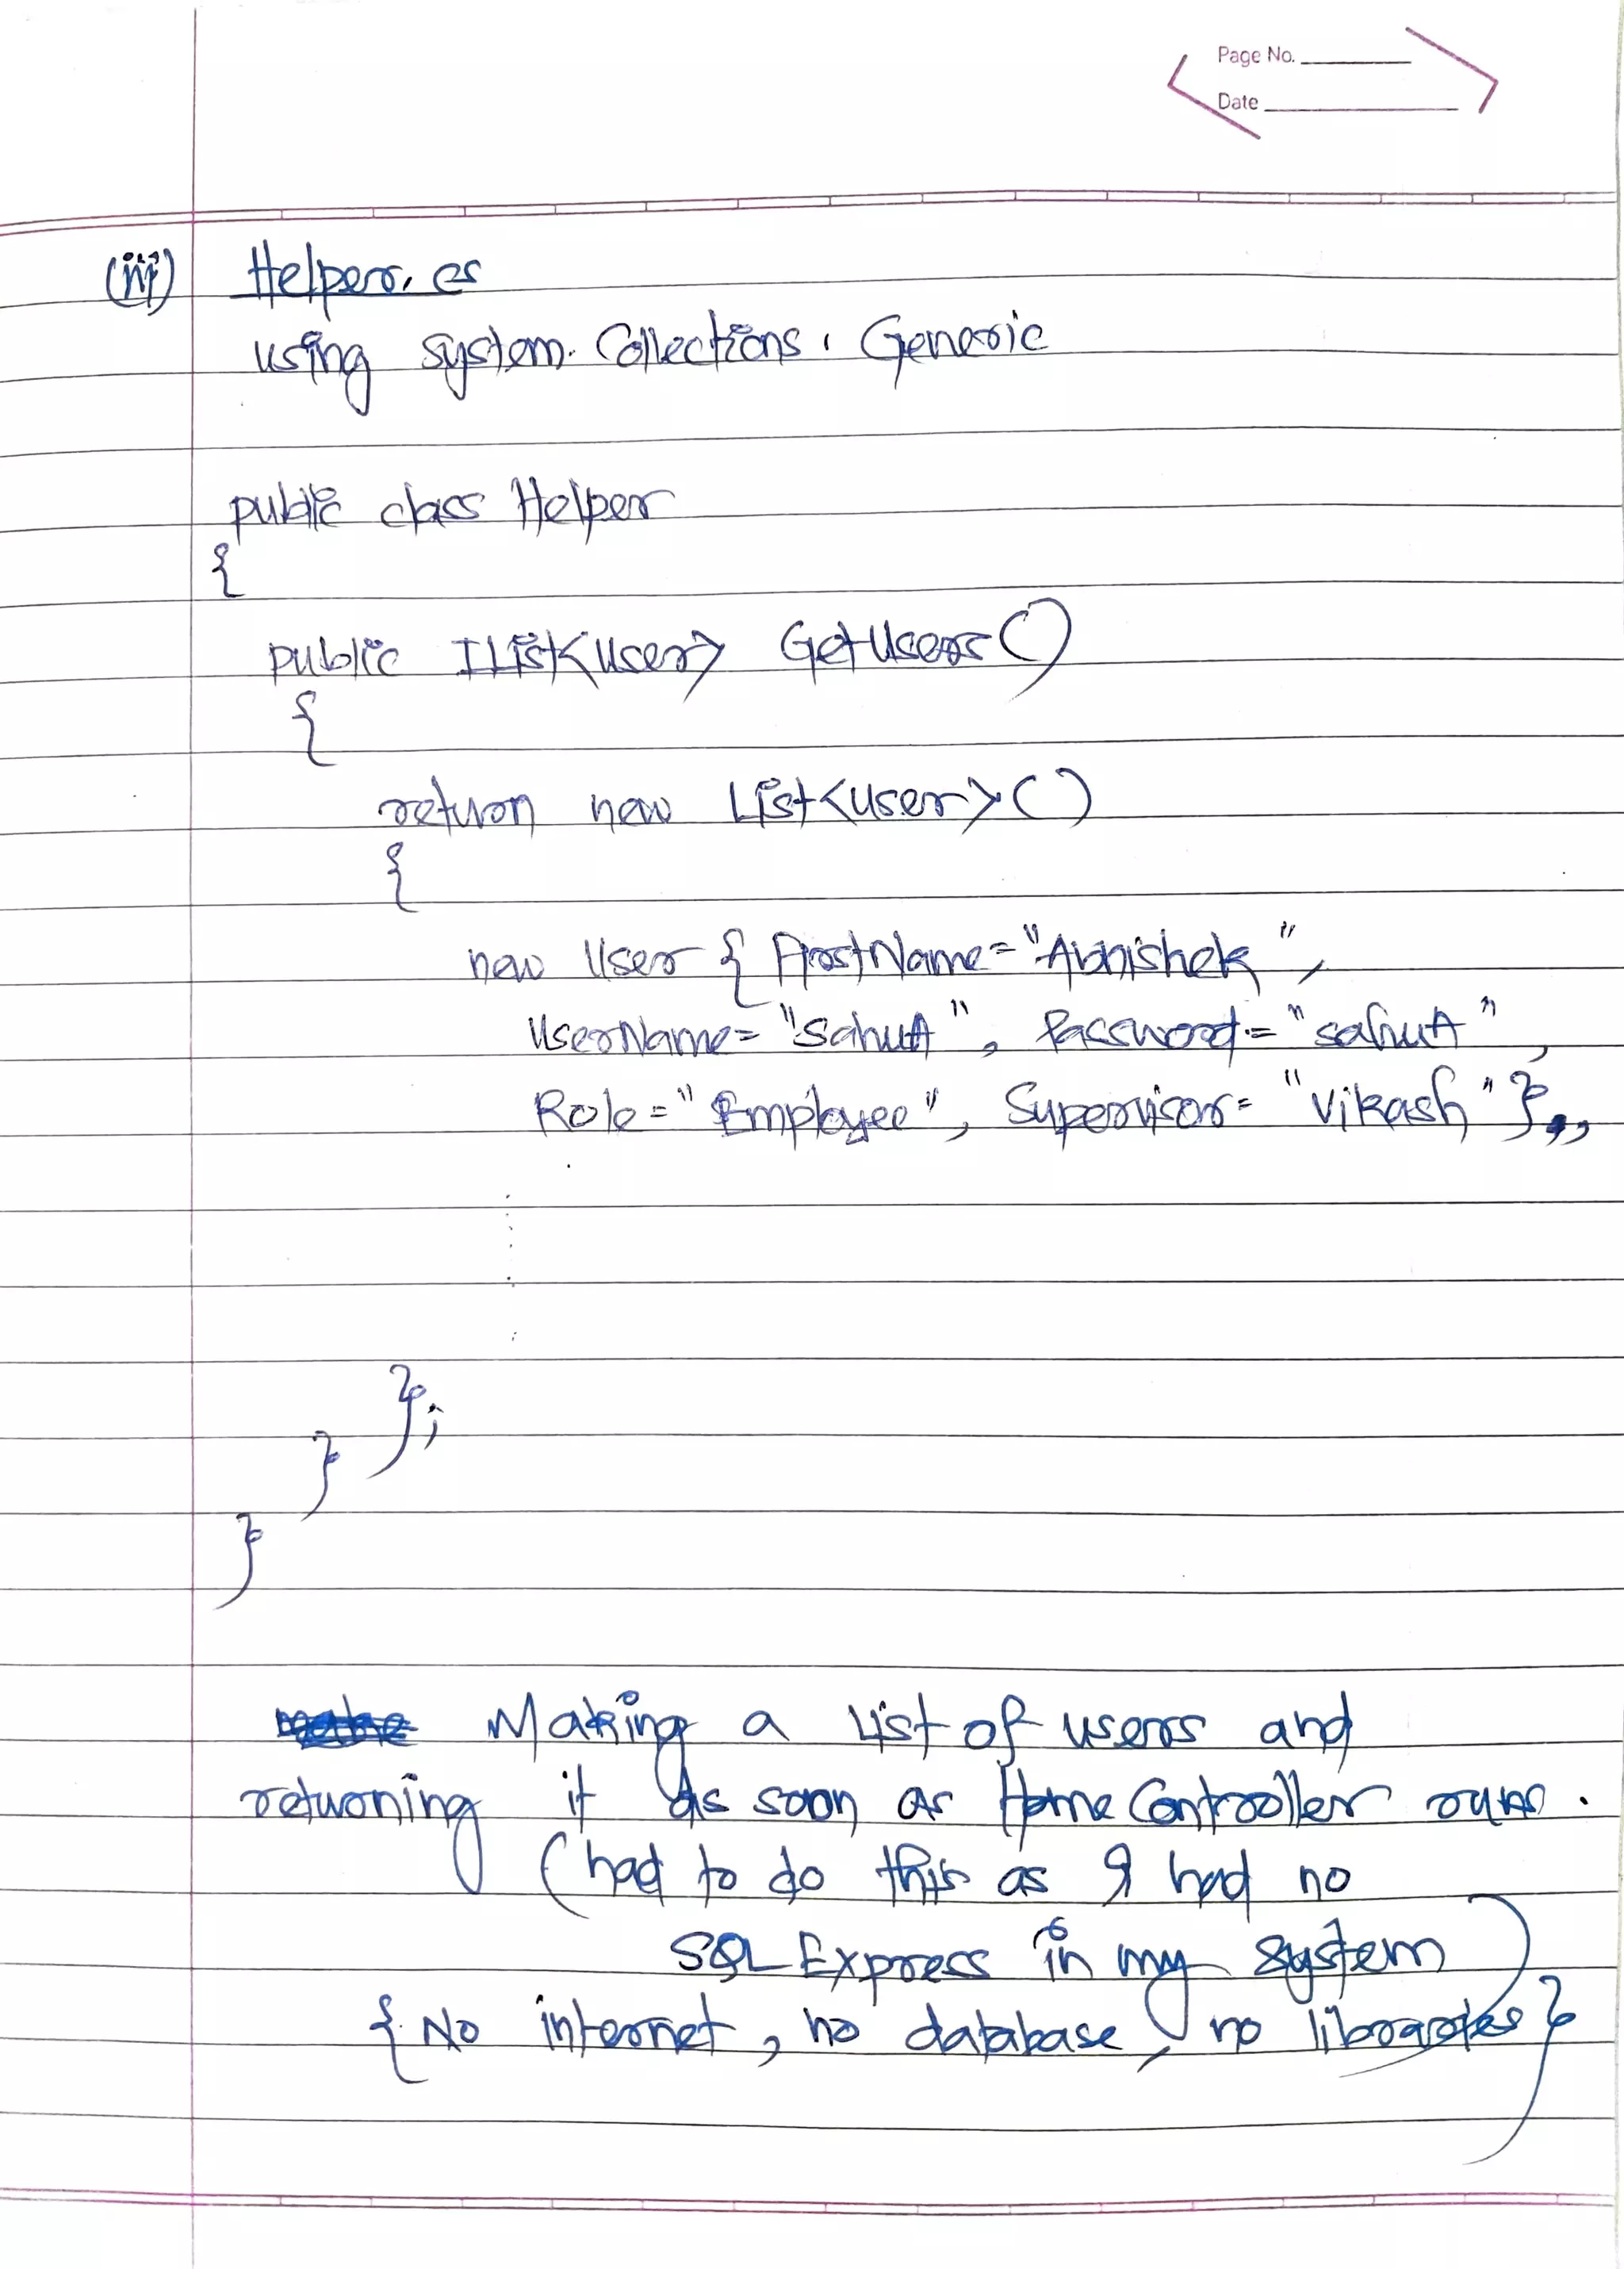 Page No.
Date
(iii) Helper.cs
using system.Collections.Generic
public class Helper
{
public IList<User> GetUsers()
{
return new List<user>()
{
new User { FirstName="Abhishek",
UserName="SahuA", Password="sahuA",
Role="Employee", Supervisor="Vikash"},,
};
}
}
Making a list of users and
returning it as soon as HomeController runs.
(had to do this as I had no
SQL Express in my system)
{No internet, no database, no libraries}